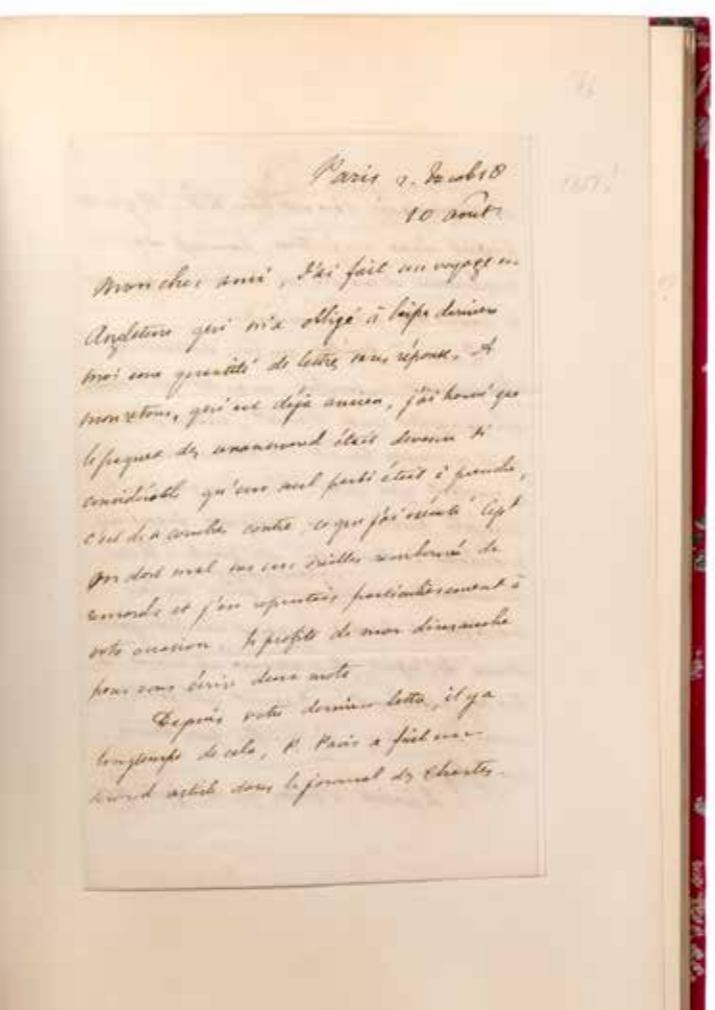 Paris r. Jacob 18
10 août
Mon cher ami, J'ai fait un voyage en
Angleterre qui m'a obligé à laisser derrière
moi une quantité de lettres sans réponse. A
mon retour, qui est déjà ancien, j'ai trouvé que
le paquet des était devenu si
considérable qu'un seul parti était à prendre,
c'est de contre ce que j'ai exécuté
On dort mal sur un oreiller rembourré de
remords et j'en repentais particulièrement à
votre occasion. Je profite de mon dimanche
pour vous écrire deux mots
Depuis votre dernière lettre, il y a
longtemps de cela, P. Paris a fait un
second article dans le journal des Chartes.